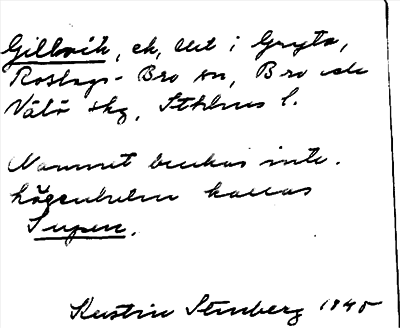 Gillvik, ek, del i Gryta,
Roslags-Bro sn, Bro och
VäLö skg, Sthlms l.
Namnet brukas inte.
Lägenheten kallas
Supen.
Kerstin Stenberg 1945